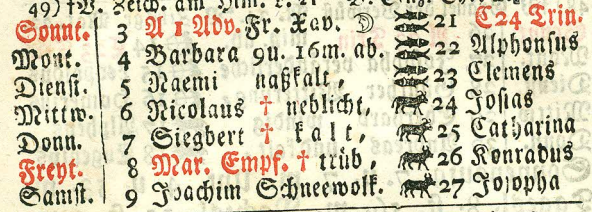 49)
Sonnt. 3 A 1 Adv. Fr. Xav. ☽ 21 C24 Trin.
Mont. 4 Barbara 9u. 16m. ab. 22 Alphonsus
Dienst. 5 Naemi naßkalt, 23 Clemens
Mittw. 6 Nicolaus † neblicht, 24 Josias
Donn. 7 Siegbert † kalt, 25 Catharina
Freyt. 8 Mar. Empf. † trüb, 26 Konradus
Samst. 9 Joachim Schneewolk. 27 Josopha